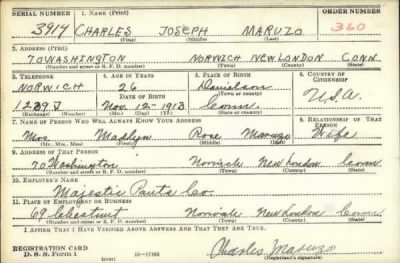 SERIAL NUMBER 1. NAME (Print) ORDER NUMBER
3914 CHARLES JOSEPH MARUZO 360
(First) (Middle) (Last)
2. ADDRESS (Print)
70 WASHINGTON NORWICH NEW LONDON CONN.
(Number and street or R. F. D. number) (Town) (County) (State)
3. TELEPHONE 4. AGE IN YEARS 5. PLACE OF BIRTH 6. COUNTRY OF CITIZENSHIP
NORWICH 26 Danielson
DATE OF BIRTH (Town or county) U.S.A.
1239J Nov. 12- 1913 Conn.
(Exchange) (Number) (Mo.) (Day) (Yr.) (State or country)
7. NAME OF PERSON WHO WILL ALWAYS KNOW YOUR ADDRESS 8. RELATIONSHIP OF THAT PERSON
Mrs Madlyn Rose Maruzo Wife
(Mr., Mrs., Miss) (First) (Middle) (Last)
9. ADDRESS OF THAT PERSON
70 Washington Norwich New London Conn
(Number and street or R. F. D. number) (Town) (County) (State)
10. EMPLOYER'S NAME
Majestic Pants Co.
11. PLACE OF EMPLOYMENT OR BUSINESS
69 Chestnut Norwich New London Conn
(Number and street or R. F. D. number) (Town) (County) (State)
I AFFIRM THAT I HAVE VERIFIED ABOVE ANSWERS AND THAT THEY ARE TRUE.
REGISTRATION CARD Charles Maruzo
D. S. S. Form 1 (over) 16-17105 (Registrant's signature)